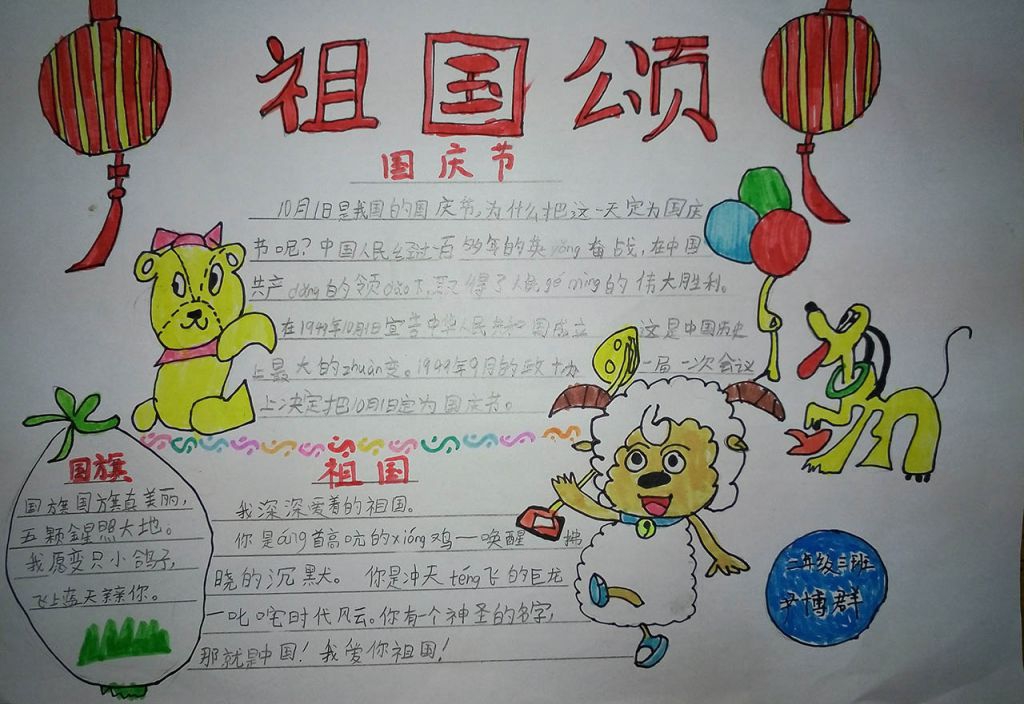 祖国颂
国庆节
10月1日是我国的国庆节,为什么把这一天定为国庆
节呢?中国人民经过一百多年的英yǒng奋战,在中国
共产dǎng的领dǎo下,取得了人民gé mìng的伟大胜利。
在1949年10月1日宣告中华人民共和国成立 这是中国历史
上最大的zhuǎn变。1949年9月的政协 一届一次会议
上决定把10月1日定为国庆节。
国旗
国旗国旗真美丽,
五颗金星照大地。
我愿变只小鸽子,
飞上蓝天亲亲你。
祖国
我深深爱着的祖国。
你是áng首高吭的xióng鸡一唤醒拂
晓的沉默。你是冲天téng飞的巨龙
一叱咤时代风云。你有一个神圣的名字,
那就是中国!我爱你祖国!
二年级三班
博群